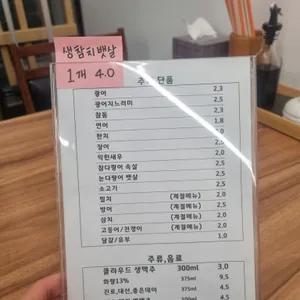 생참치뱃살
1개 4.0
단품
광어 2,3
광어지느러미 2,5
참돔 2,3
연어 1,8
한치 2,0
장어 2,5
익힌새우 2,0
참다랑어 속살 2,5
눈다랑어 뱃살 2,5
소고기 2,5
(계절메뉴) 2,0
방어 (계절메뉴) 2,5
삼치 (계절메뉴) 2,0
고등어/전갱이 (계절메뉴) 2,0
달걀/유부 1,0
주류,음료
클라우드 생맥주 300ml 3,0
화랑13% 375ml 9,5
진로,대선,좋은데이 4,5